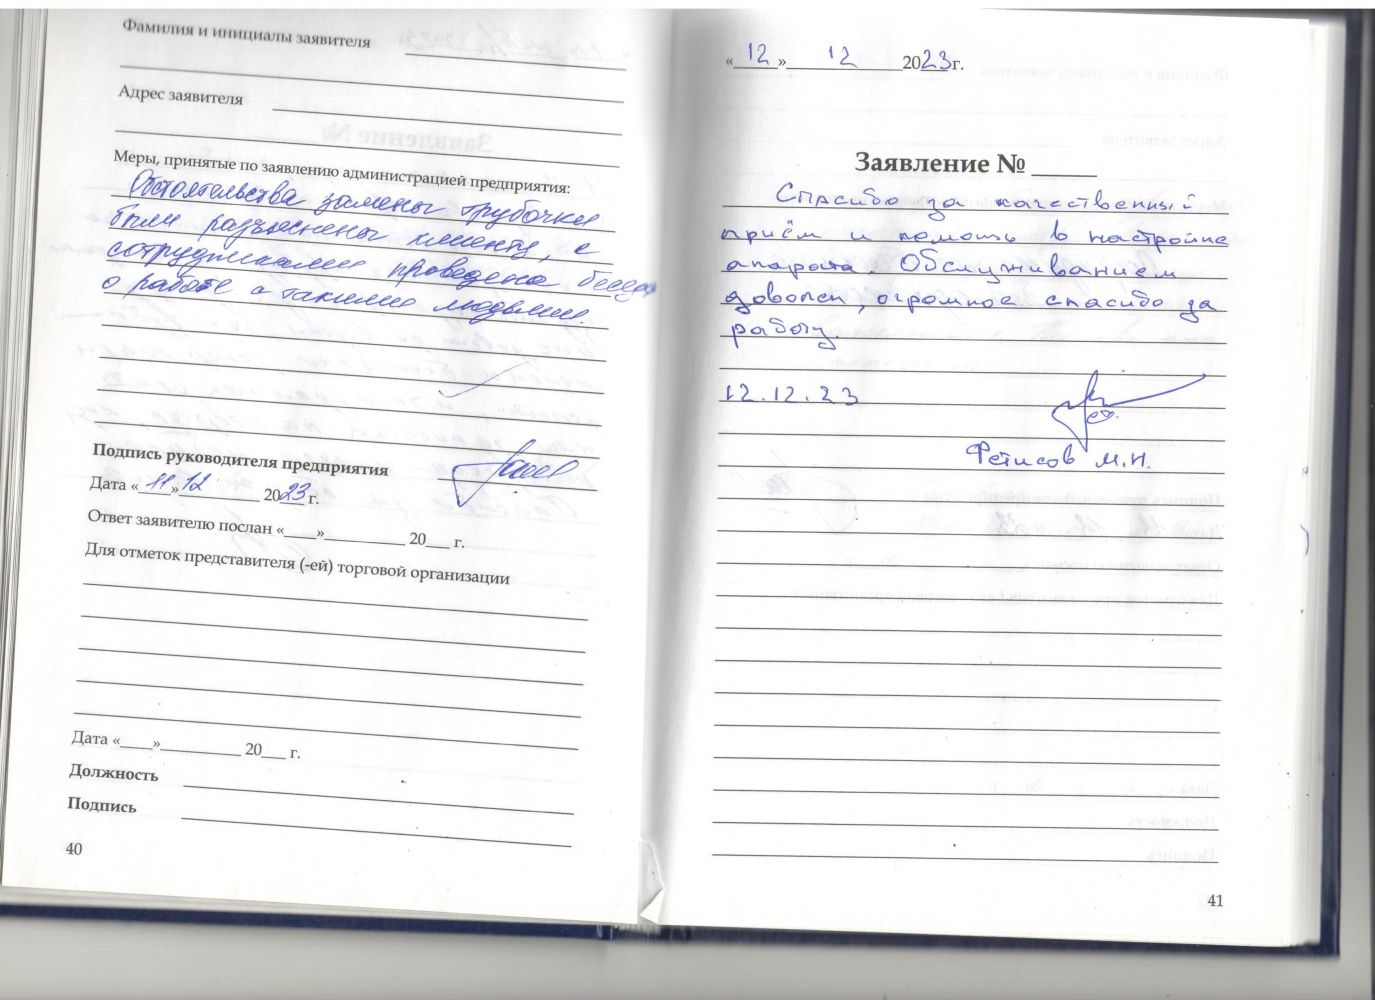 Фамилия и инициалы заявителя
Адрес заявителя
Меры, принятые по заявлению администрацией предприятия:
Обстоятельства замены трубочки
были разъяснены клиенту, с
сотрудниками проведена беседа
о работе с такими людьми.
Подпись руководителя предприятия
Дата «11» 12 2023 г.
Ответ заявителю послан «____»__________ 20___ г.
Для отметок представителя (-ей) торговой организации
Дата «____»__________ 20___ г.
Должность
Подпись
40
«12» 12 2023 г.
Заявление № _____
Спасибо за качественный
приём и помощь в настройке
апарата. Обслуживанием
доволен, огромное спасибо за
работу.
12.12.23
Фетисов М.Н.
41